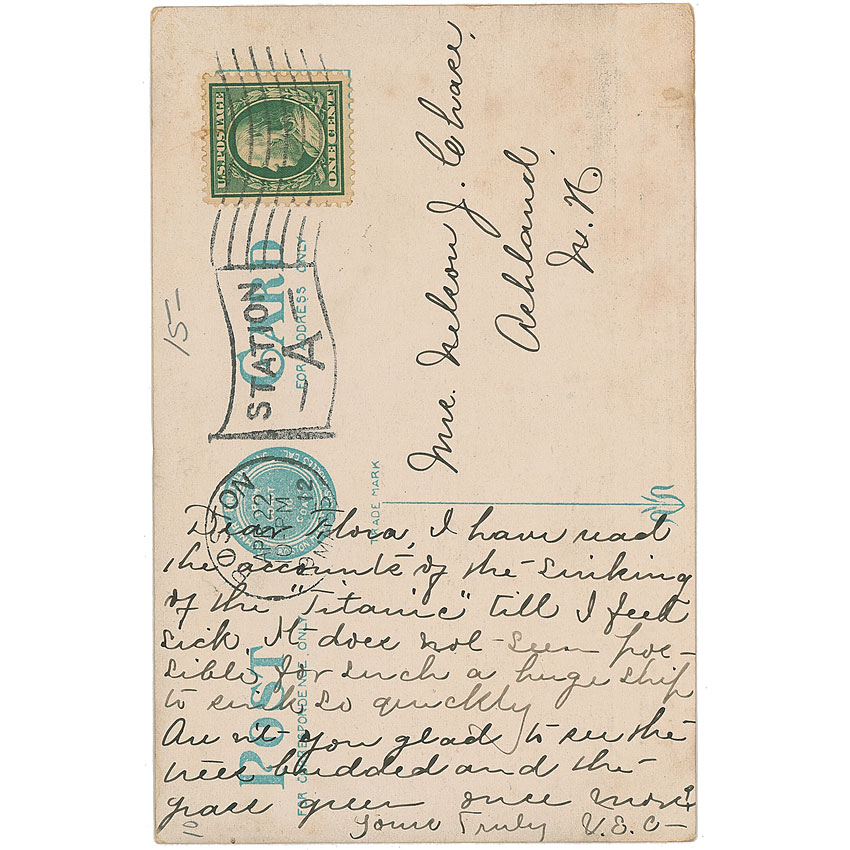 U.S. POSTAGE
ONE CENT
STATION
A
BOSTON
APR 22
PM
12
MASS.
POST CARD
FOR CORRESPONDENCE ONLY
FOR ADDRESS ONLY
TRADE MARK
15-
Mrs. Nelson J. Chase,
Ashland,
N. H.
Dear Flora, I have read
the accounts of the sinking
of the "Titanic" till I feel
sick. It does not seem pos-
sible for such a huge ship
to sink so quickly
Are n't you glad to see the
trees budded and the
grass green once more?
Yours Truly V. E. C-
10